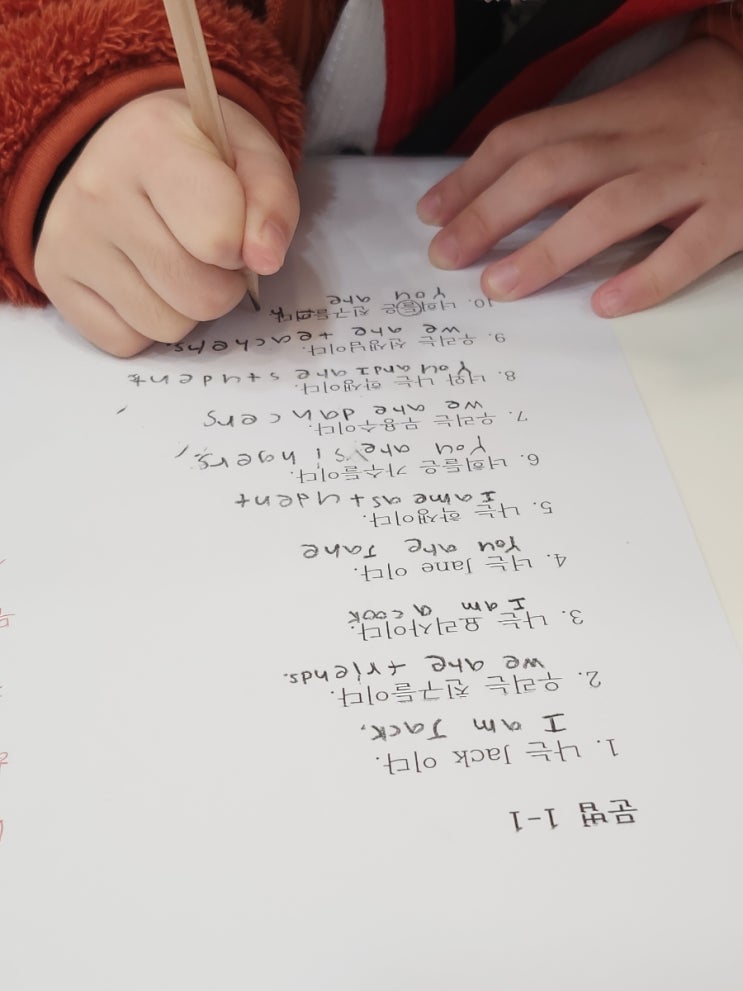 문법 1-1
1. 나는 Jack 이다.
I am Jack.
2. 우리는 친구들이다.
we are friends.
3. 나는 요리사이다.
I am a cook
4. 너는 Jane 이다.
You are Jane
5. 나는 학생이다.
I ame as tudent
6. 너희들은 가수들이다.
You are singers,
7. 우리는 무용수이다.
we are dancers
8. 너와 나는 학생이다.
You and I are student
9. 우리는 선생님이다.
we are teachers.
10. 너희들은 친구들이다
You are